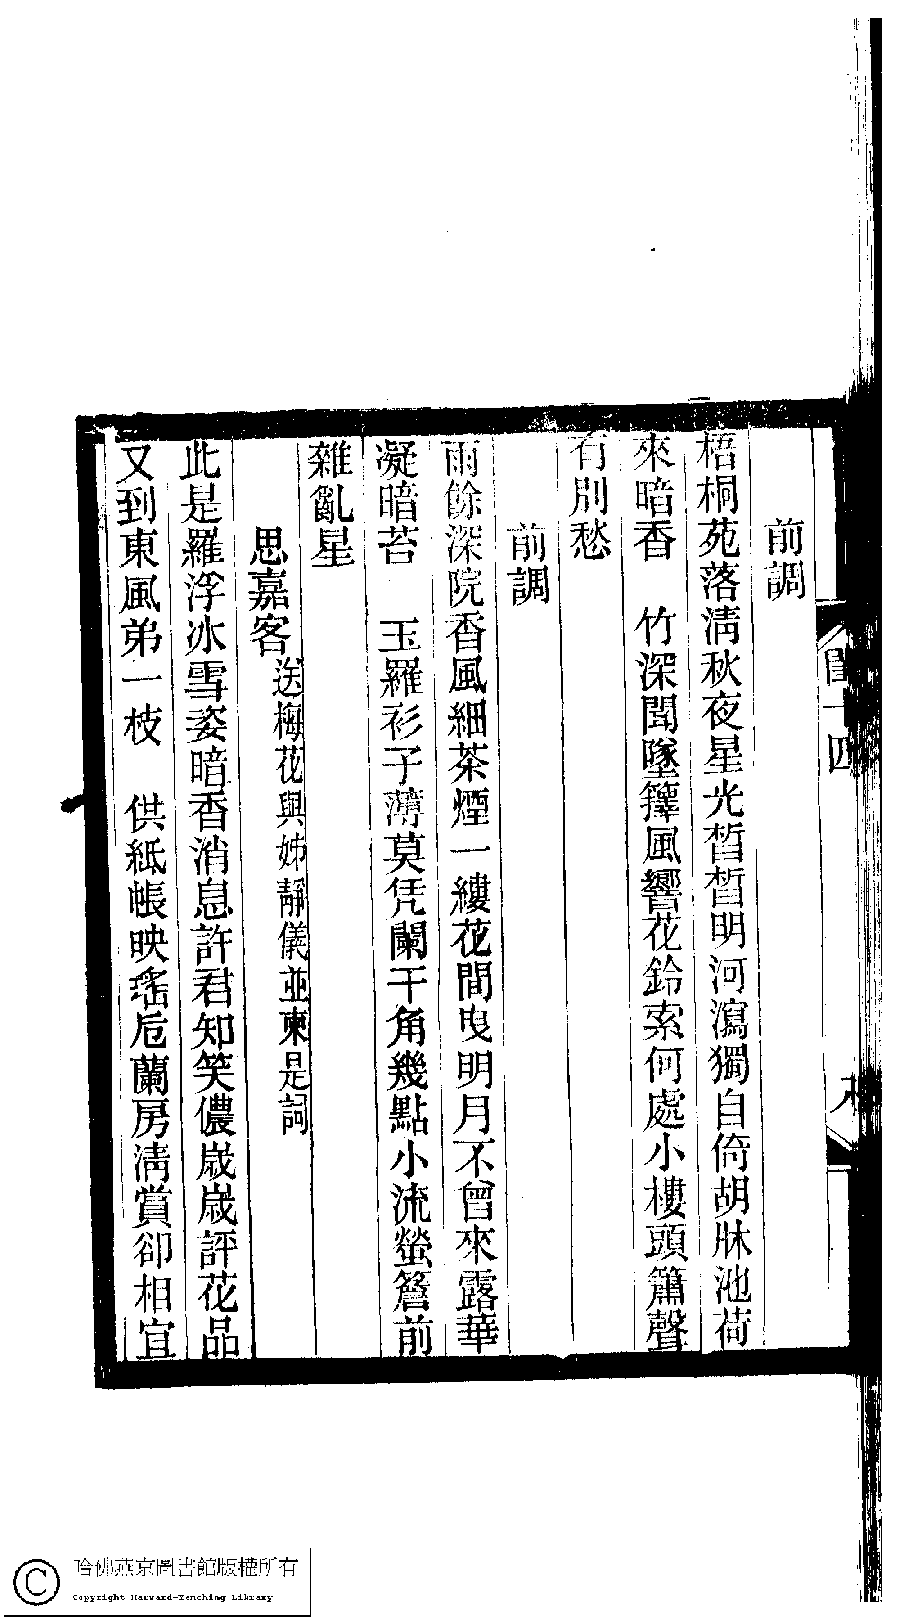 前調
梧桐苑落淸秋夜星光晳晳明河瀉獨自倚胡牀池荷
來暗香　竹深聞墜籜風響花鈴索何處小樓頭簫聲
有別愁
前調
雨餘深院香風細茶煙一縷花間曳明月不曾來露華
凝暗苔　玉羅衫子薄莫凭闌干角幾點小流螢簷前
雜亂星
思嘉客送梅花與姊靜儀並柬是詞
此是羅浮冰雪姿暗香消息許君知笑儂歲歲評花品
又到東風弟一枝　供紙帳映瑤卮蘭房淸賞卻相宜
哈佛燕京圖書館版權所有
Copyright Harvard-Yenching Library